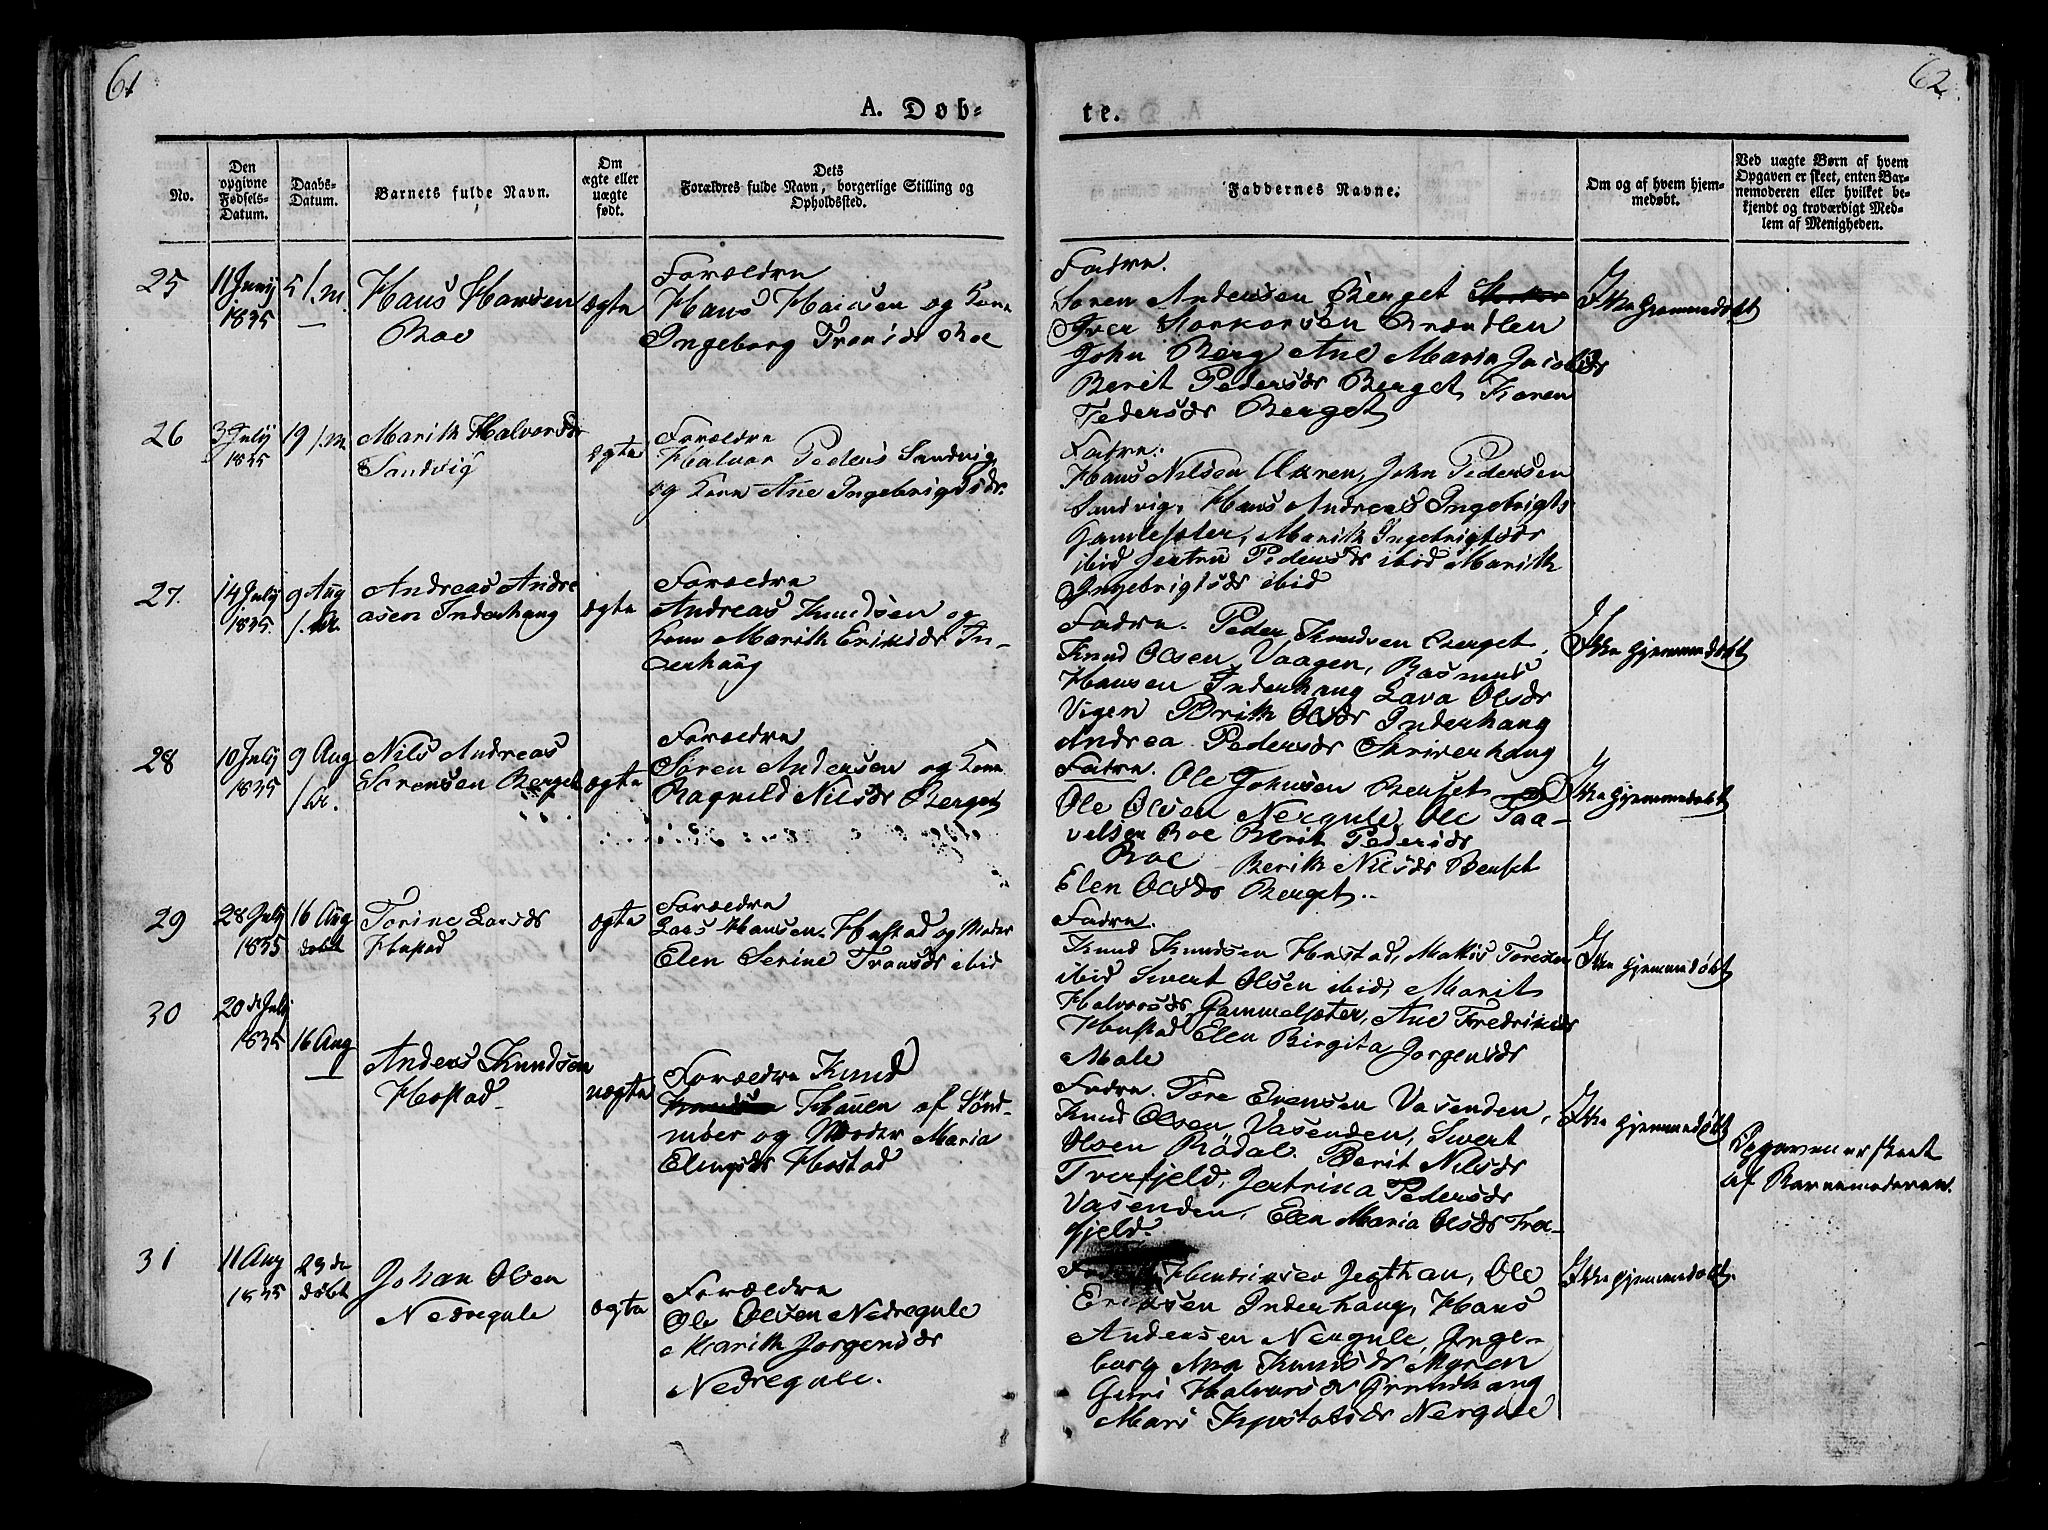 61
62
A. Døb-
te.
No.
Den opgivne Fødsels-Datum.
Daabs-Datum.
Barnets fulde Navn.
Om ægte eller uægte født.
Dets
Forældres fulde Navn, borgerlige Stilling og
Opholdssted.
Faddernes Navne.
Om og af hvem hjem-
medøbt.
Ved uægte Børn af hvem
Opgaven er skeet, enten Bar-
nemoderen eller hvilket be-
kjendt og troværdigt Med-
lem af Menigheden.
25
11 Junij
1835
5 f.m.
Hans Hansen
Roe
ægte
Forældre
Hans Hansen og Kone
Ingeborg Tronsdr Roe
Fadre.
Søren Andersen Berget
Iver Korkorsen Brændlen
John Berg Ane Maria Jacobsdr
Berit Pedersdr Berget Karen
Pedersdr Berget
Ikke Hjemmedøbt
26
3 July
1835
19 f.m.
Marith Halvorsdr
Sandvig
ægte
Forældre
Halvor Peders Sandvig
og Kone Ane Ingebrigtsdr.
Fadre.
Hans Nilsen Ukren, John Pedersen
Sandvig, Hans Andreas Ingebrigts
Gamlesæter, Marith Ingebrigtsdr
ibid Jertru Pedersdr ibid Marith
Ingebrigtsdr ibid
27.
14 July
1835.
9 Aug
Andreas Andre
asen Inderhaug
ægte
Forældre
Andreas Knudsen og
Kone Marith Eriksdr In-
derhaug
Fadre. Peder Knudsen Berget
Knud Olsen Vaagen, Rasmus
Hansen Inderhaug Lava Olsdr
Vigen Brith Olsdr Inderhaug
Andrea Pedersdr Skriverhaug
Ikke Hjemmedøbt
28
10 July
1835
9 Aug
Nils Andreas
Sørensen Berget
ægte
Forældre
Søren Andersen og Kone
Ragnild Nilsdr Berget
Fadre. Ole Johnsen Benset
Ole Olsen Nergule Ole Paa-
velsen Roe Berit Pedersdr
Roe Berith Nilsdr Benset
Elen Olsdr Berget.
Ikke Hjemmedøbt
29
28 July
1835
16 Aug
døbt
Torine Larsdr
Hustad
ægte
Forældre
Lars Hansen Hustad og Moder
Elen Serine Tronsdr ibid
Fadre.
Knud Knudsen Hustad, Mattis Toresen
ibid Sivert Olsen ibid, Marit
Halvorsdr Gammelsæter, Ane Fredriksdr
Hustad Elen Birgita Jørgensdr
Male
Ikke Hjemmedøbt
30
20 de July
1835
16 Aug
Anders Knudsen
Hostad
uægte
Forældre Knud
Hauen af Sønd-
møer og Moder Maria
Elingsdr Hostad
Fadre. Tore Evensen Vasenden,
Knud Olsen Vasenden, Sivert
Olsen Rødal. Berit Nilsdr
Tverfjeld, Jertrina Pedersdr
Vasenden, Elen Maria Olsdr Tver-
fjeld.
Ikke Hjemmedøbt
Opgaven er skeet
af Barnemoderen.
31
11 Aug
1835
23 de
døbt
Johan Olsen
Nedregule
ægte
Forældre
Ole Olsen Nedregule
Marith Jørgensdr
Nedregule.
Hendriksen Jegthan, Ole
Ericksen Inderhaug, Hans
Andersen Nergule, Inge-
borg Knudsdr Myren
Guri Halvorsdr
Mari Nergule
Ikke Hjemmedøbt